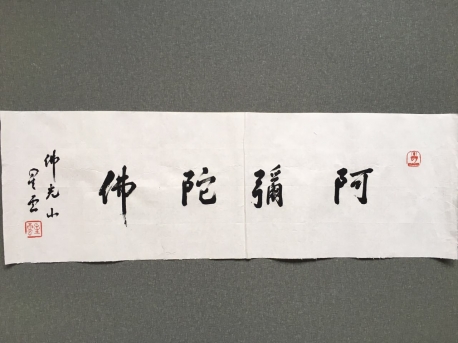 阿彌陀佛
佛光山
星雲